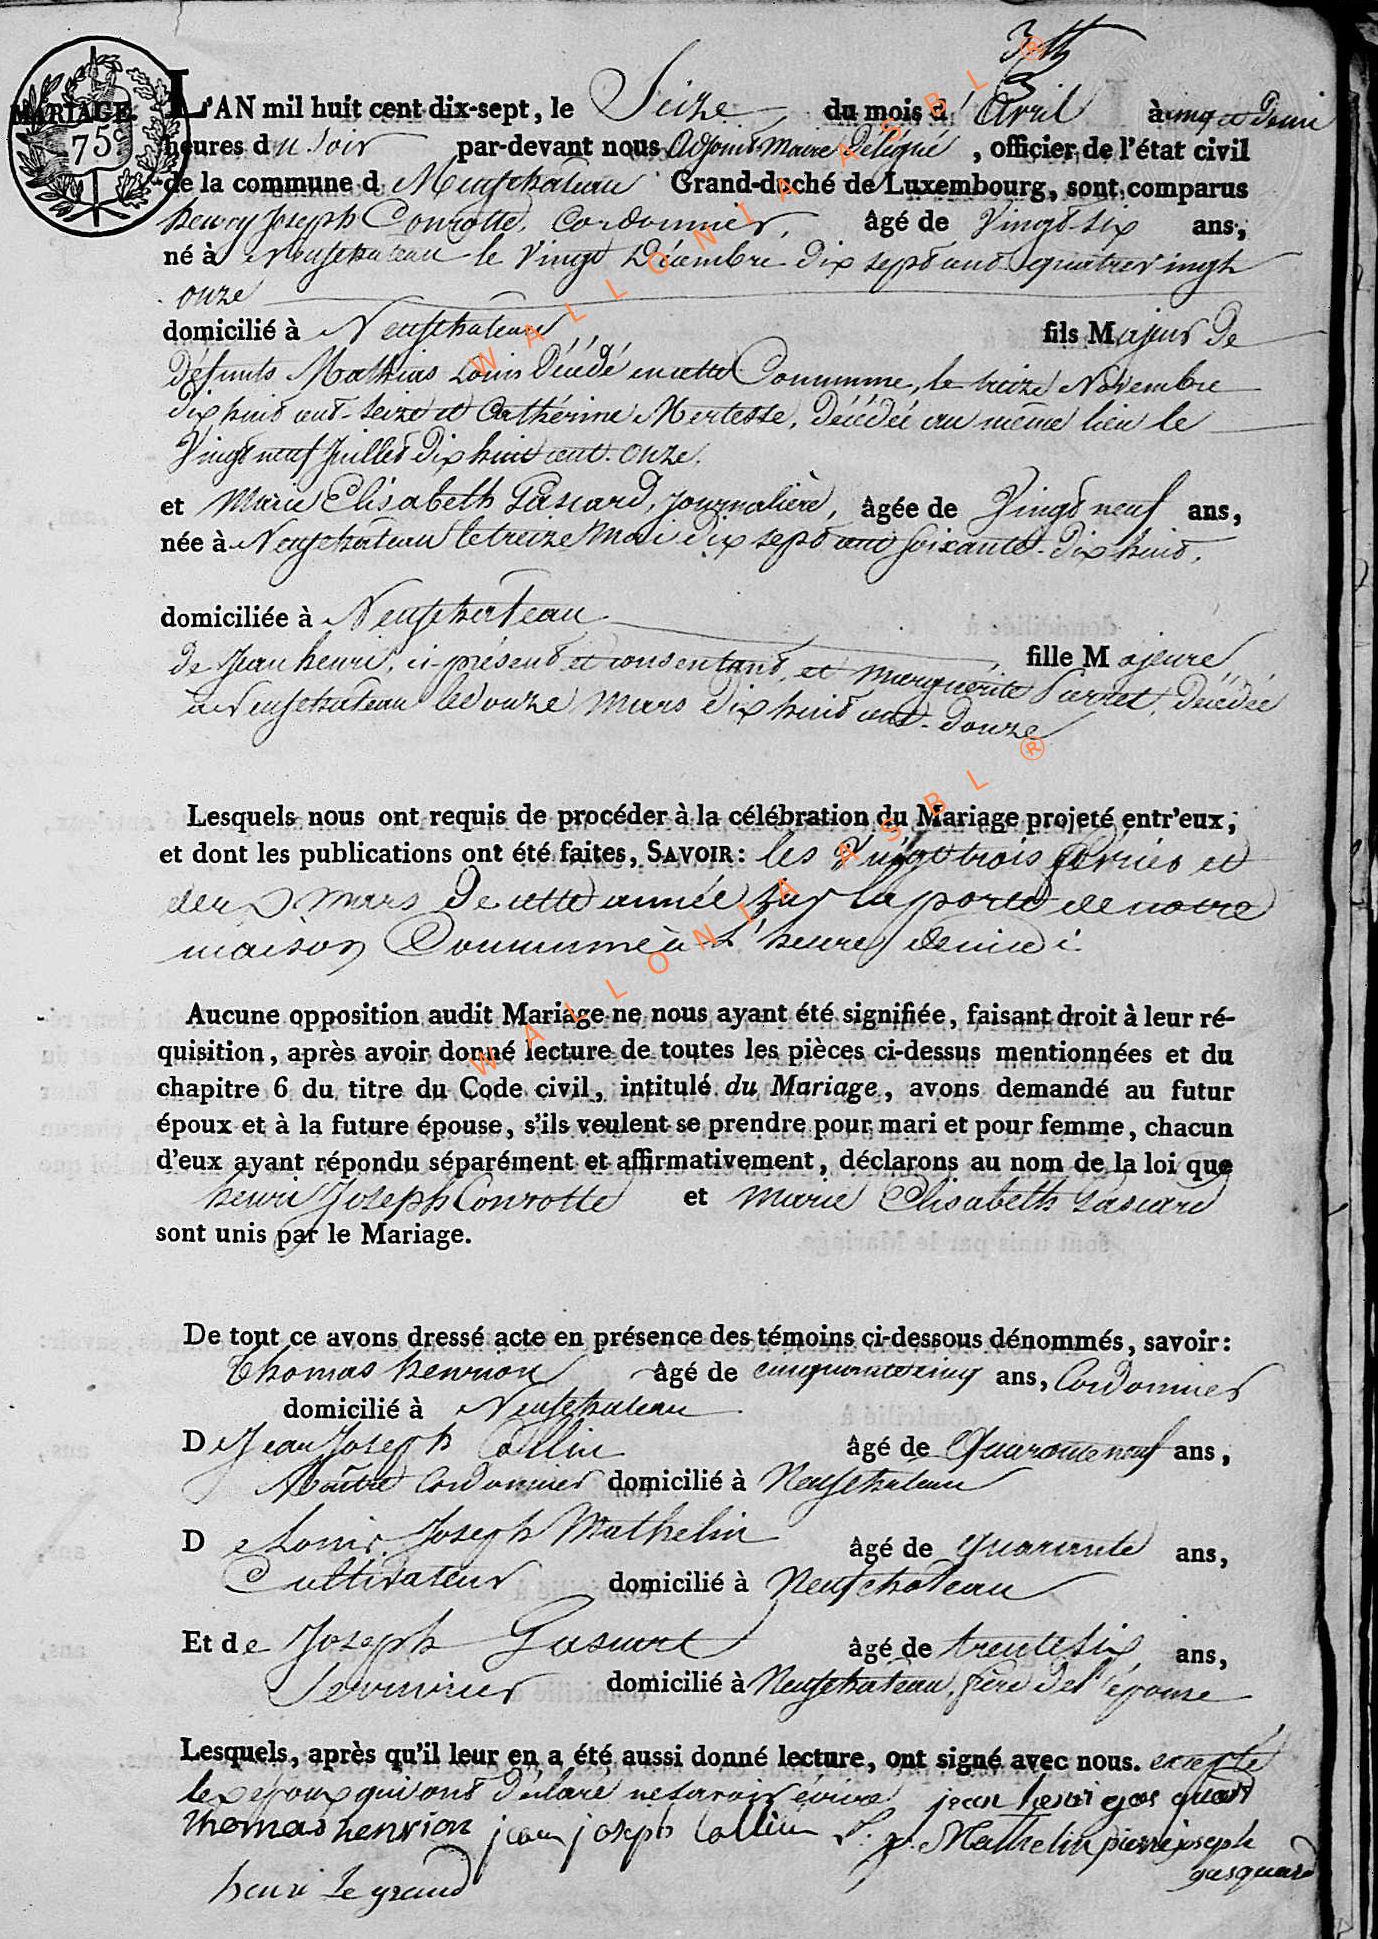 MARIAGE.
75c
3
L'AN mil huit cent dix-sept, le Seize du mois d'Avril à cinq et Demi
heures du Soir par-devant nous Adjoint Maire Délégué, officier de l'état civil
de la commune d Neufchateau Grand-duché de Luxembourg, sont comparus
henry Joseph Conrotte, Cordonnier, âgé de Vingt-six ans,
né à Neufchateau le Vingt Décembre dix sept cent quatrevingt
onze
domicilié à Neufchateau fils Majeur de
défunts Mathias Louis Décédé en cette Commune, le treize Novembre
dix huit cent-seize et Cathérine Mertesse, Décédée au même lieu le
Vingt neuf Juillet dix huit cent-onze.
et Marie Elisabeth Gascard, journalière, âgée de Vingt neuf ans,
née à Neufchateau le treize Mai dix sept cent soixante-dix huit,
domiciliée à Neufchateau
fille Majeure
de Jean henri, ci-présent et consentant, et Marguerite Pierret, Décédée
à Neufchateau le onze Mars dix huit cent-douze
Lesquels nous ont requis de procéder à la célébration du Mariage projeté entr'eux,
et dont les publications ont été faites, SAVOIR: les Vingt trois fevrier et
deux mars De cette année sur la porte de notre
maison Commune à L'heure de midi.
Aucune opposition audit Mariage ne nous ayant été signifiée, faisant droit à leur ré-
quisition, après avoir donné lecture de toutes les pièces ci-dessus mentionnées et du
chapitre 6 du titre du Code civil, intitulé du Mariage, avons demandé au futur
époux et à la future épouse, s'ils veulent se prendre pour mari et pour femme, chacun
d'eux ayant répondu séparément et affirmativement, déclarons au nom de la loi que
henri Joseph Conrotte et Marie Elisabeth Gascard
sont unis par le Mariage.
De tout ce avons dressé acte en présence des témoins ci-dessous dénommés, savoir:
Thomas henrion âgé de cinquante cinq ans, Cordonnier
domicilié à Neufchateau
De Jean Joseph Collin âgé de Quarante neuf ans,
Maître Cordonnier domicilié à Neufchateau
De Louis Joseph Mathelin âgé de quarante ans,
Cultivateur domicilié à Neufchateau
Et de Joseph Gascard âgé de trente six ans,
Serrurier domicilié à Neufchateau, frère de l'épouse
Lesquels, après qu'il leur en a été aussi donné lecture, ont signé avec nous. excepté
les époux qui ont déclaré ne savoir écrire jean henri gas quard
thomas henrion jean joseph Collin L. j. Mathelin pierre joseph
gasquard
henri Le grand
WALLONIA ASBL ®
WALLONIA ASBL ®